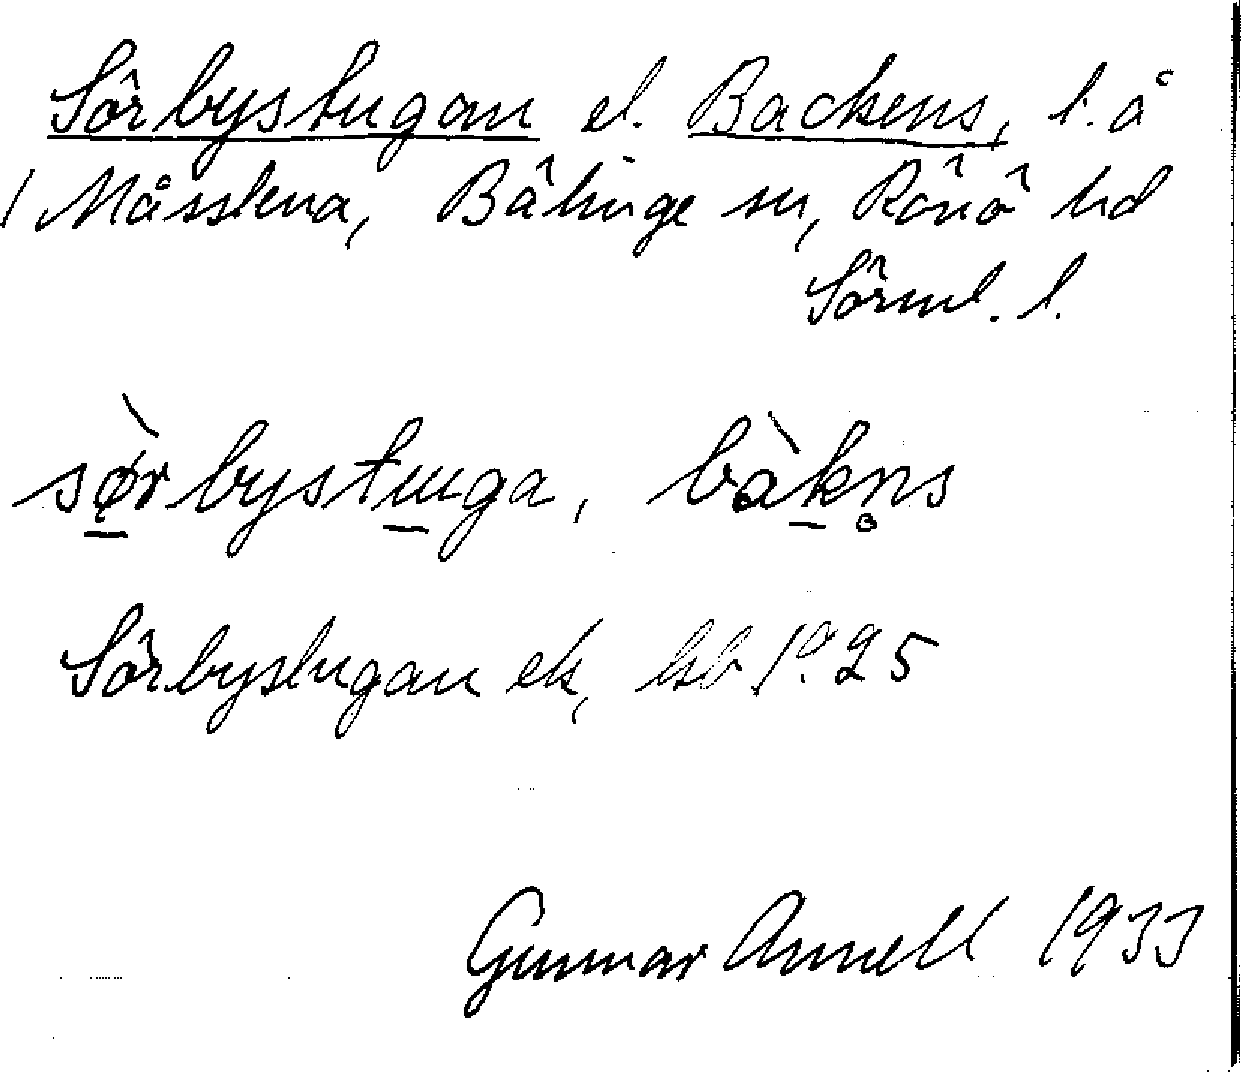 Sörbystugan el. Backens, l. å
1 Måsstena, Bälinge sn, Rönö hd
Sörml. l.
sø̀rbystuga, bàkn̥s
Sörbystugan ek, lsb 1º. 25
Gunnar Annell 1933